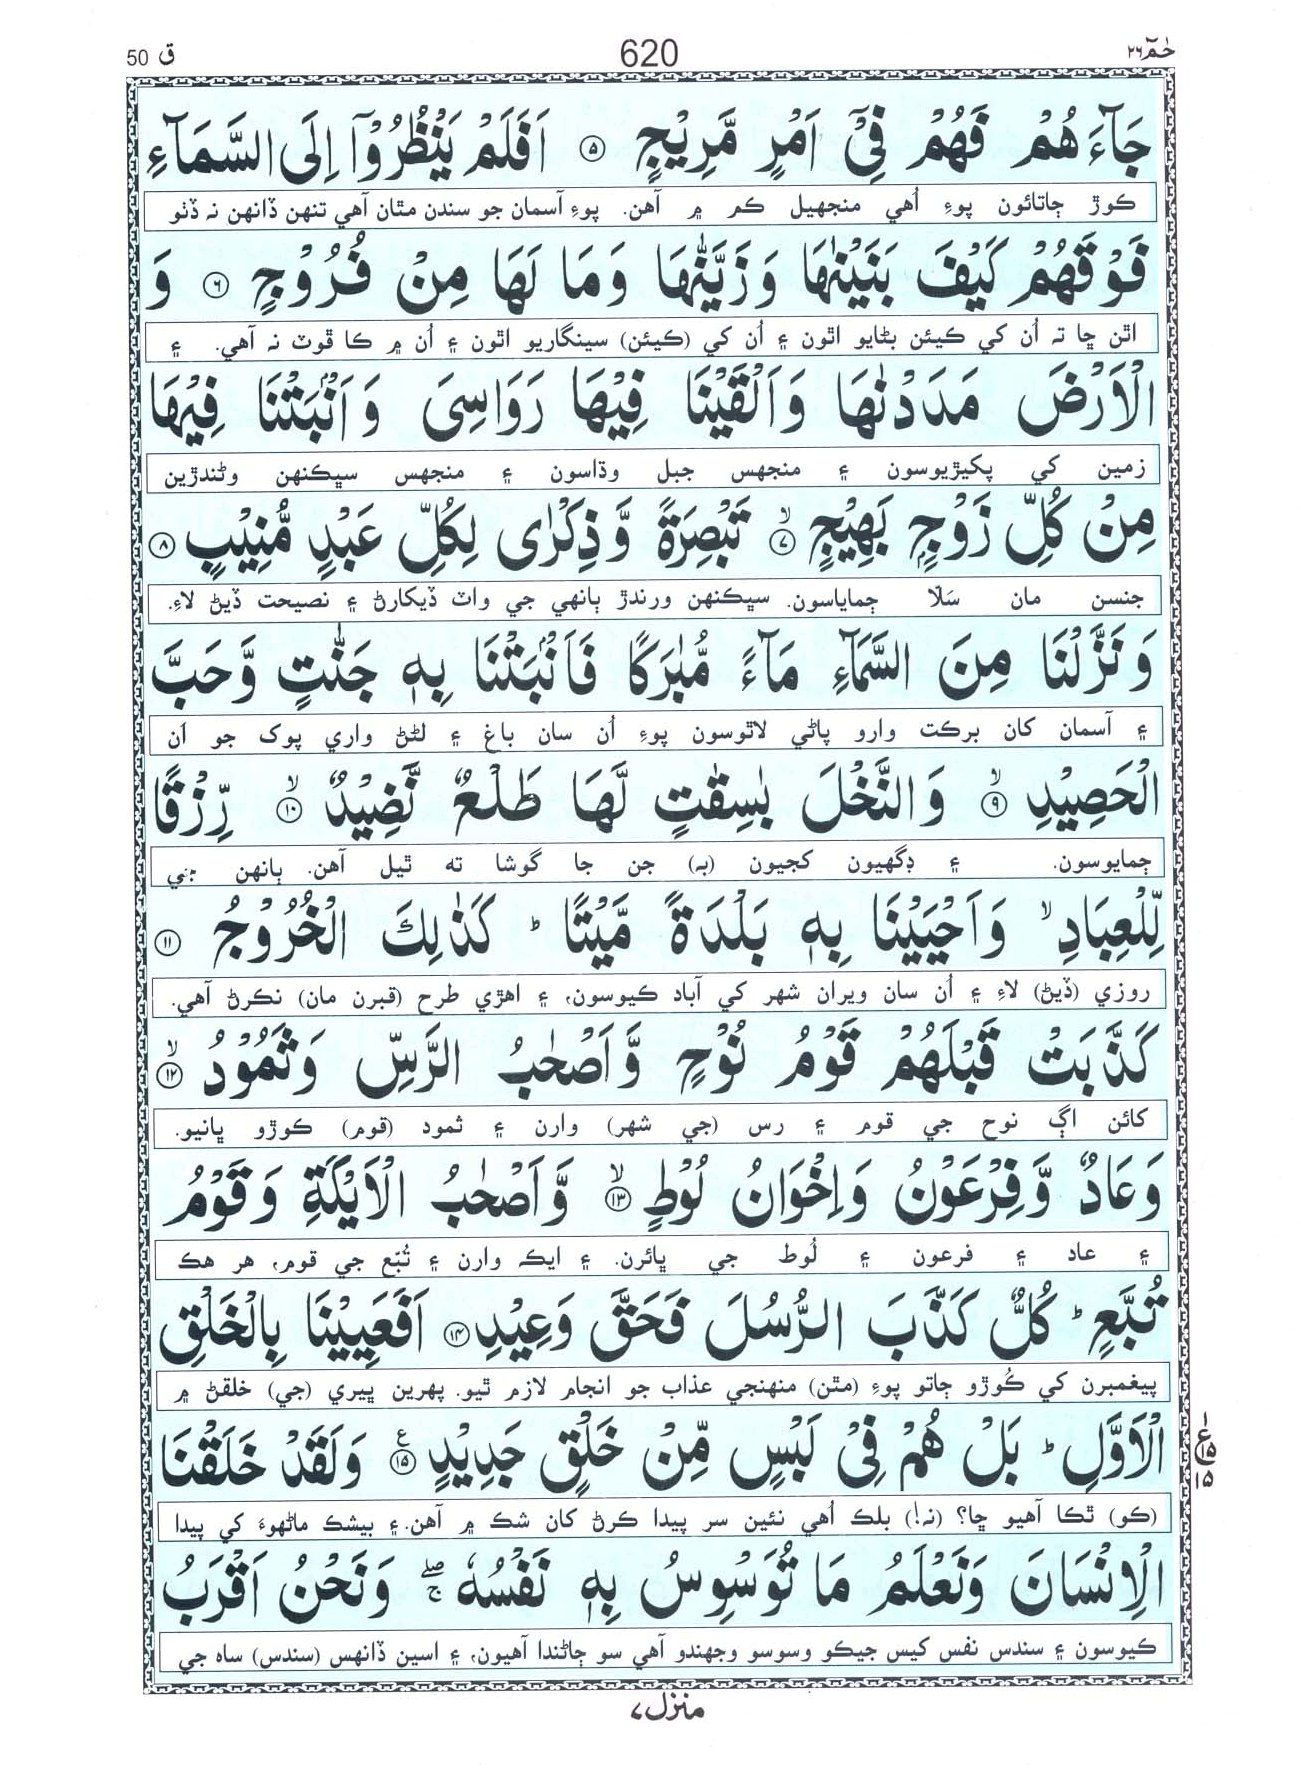 حٰمٓ ٢٦ 620 ق 50
جَآءَهُمْ فَهُمْ فِىْۤ اَمْرٍ مَّرِيْجٍ ۵ اَفَلَمْ يَنْظُرُوْۤا اِلَى السَّمَآءِ
ڪوڙ ڄاتائون پوءِ اُهي منجهيل ڪم ۾ آهن. پوءِ آسمان جو سندن مٿان آهي تنهن ڏانهن نہ ڏٺو
فَوْقَهُمْ كَيْفَ بَنَيْنٰهَا وَ زَيَّنّٰهَا وَ مَا لَهَا مِنْ فُرُوْجٍ ۶ وَ
اٿن ڇا تہ اُن کي ڪيئن بڻايو اٿون ۽ اُن کي (ڪيئن) سينگاريو اٿون ۽ اُن ۾ ڪا ڦوٽ نہ آهي. ۽
الْاَرْضَ مَدَدْنٰهَا وَ اَلْقَيْنَا فِيْهَا رَوَاسِىَ وَ اَنْۢبَتْنَا فِيْهَا
زمين کي پکيڙيوسون ۽ منجهس جبل وڌاسون ۽ منجهس سڀڪنهن وڻندڙين
مِنْ كُلِّ زَوْجٍۭ بَهِيْجٍ ۙ ۷ تَبْصِرَةً وَّ ذِكْرٰى لِكُلِّ عَبْدٍ مُّنِيْبٍ ۸
جنسن مان سَلا ڄماياسون. سڀڪنهن ورندڙ ٻانهي جي واٽ ڏيکارڻ ۽ نصيحت ڏيڻ لاءِ.
وَ نَزَّلْنَا مِنَ السَّمَآءِ مَآءً مُّبٰرَكًا فَاَنْۢبَتْنَا بِهٖ جَنّٰتٍ وَّ حَبَّ
۽ آسمان کان برڪت وارو پاڻي لاٿوسون پوءِ اُن سان باغ ۽ لڻڻ واري پوک جو اَن
الْحَصِيْدِ ۙ ۹ وَ النَّخْلَ بٰسِقٰتٍ لَّهَا طَلْعٌ نَّضِيْدٌ ۙ ۱۰ رِّزْقًا
ڄمايوسون. ۽ ڊگهيون کجيون (بہ) جن جا گوشا تہ ٿيل آهن. ٻانهن جي
لِّلْعِبَادِ ۙ وَ اَحْيَيْنَا بِهٖ بَلْدَةً مَّيْتًا ؕ كَذٰلِكَ الْخُرُوْجُ ۱۱
روزي (ڏيڻ) لاءِ ۽ اُن سان ويران شهر کي آباد ڪيوسون، ۽ اهڙي طرح (قبرن مان) نڪرڻ آهي.
كَذَّبَتْ قَبْلَهُمْ قَوْمُ نُوْحٍ وَّ اَصْحٰبُ الرَّسِّ وَ ثَمُوْدُ ۙ ۱۲
کائن اڳ نوح جي قوم ۽ رس (جي شهر) وارن ۽ ثمود (قوم) ڪوڙو ڀانيو.
وَ عَادٌ وَّ فِرْعَوْنُ وَ اِخْوَانُ لُوْطٍ ۙ ۱۳ وَّ اَصْحٰبُ الْاَيْكَةِ وَ قَوْمُ
۽ عاد ۽ فرعون ۽ لُوط جي ڀائرن. ۽ ايڪ وارن ۽ تُبّع جي قوم، هر هڪ
تُبَّعٍ ؕ كُلٌّ كَذَّبَ الرُّسُلَ فَحَقَّ وَعِيْدِ ۱۴ اَفَعَيِيْنَا بِالْخَلْقِ
پيغمبرن کي ڪُوڙو ڄاتو پوءِ (مٿن) منهنجي عذاب جو انجام لازم ٿيو. پهرين ڀيري (جي) خلقڻ ۾
الْاَوَّلِ ؕ بَلْ هُمْ فِىْ لَبْسٍ مِّنْ خَلْقٍ جَدِيْدٍ ۱۵ ع وَ لَقَدْ خَلَقْنَا
۱ ع ۱۵ ۱۵
(ڪو) ٿڪا آهيو ڇا؟ (نہ!) بلڪ اُهي نئين سر پيدا ڪرڻ کان شڪ ۾ آهن. ۽ بيشڪ ماڻهوءَ کي پيدا
الْاِنْسَانَ وَ نَعْلَمُ مَا تُوَسْوِسُ بِهٖ نَفْسُهٗ ۖۚ وَ نَحْنُ اَقْرَبُ
ڪيوسون ۽ سندس نفس کيس جيڪو وسوسو وجهندو آهي سو ڄاڻندا آهيون، ۽ اسين ڏانهس (سندس) ساه جي
منزل ۷